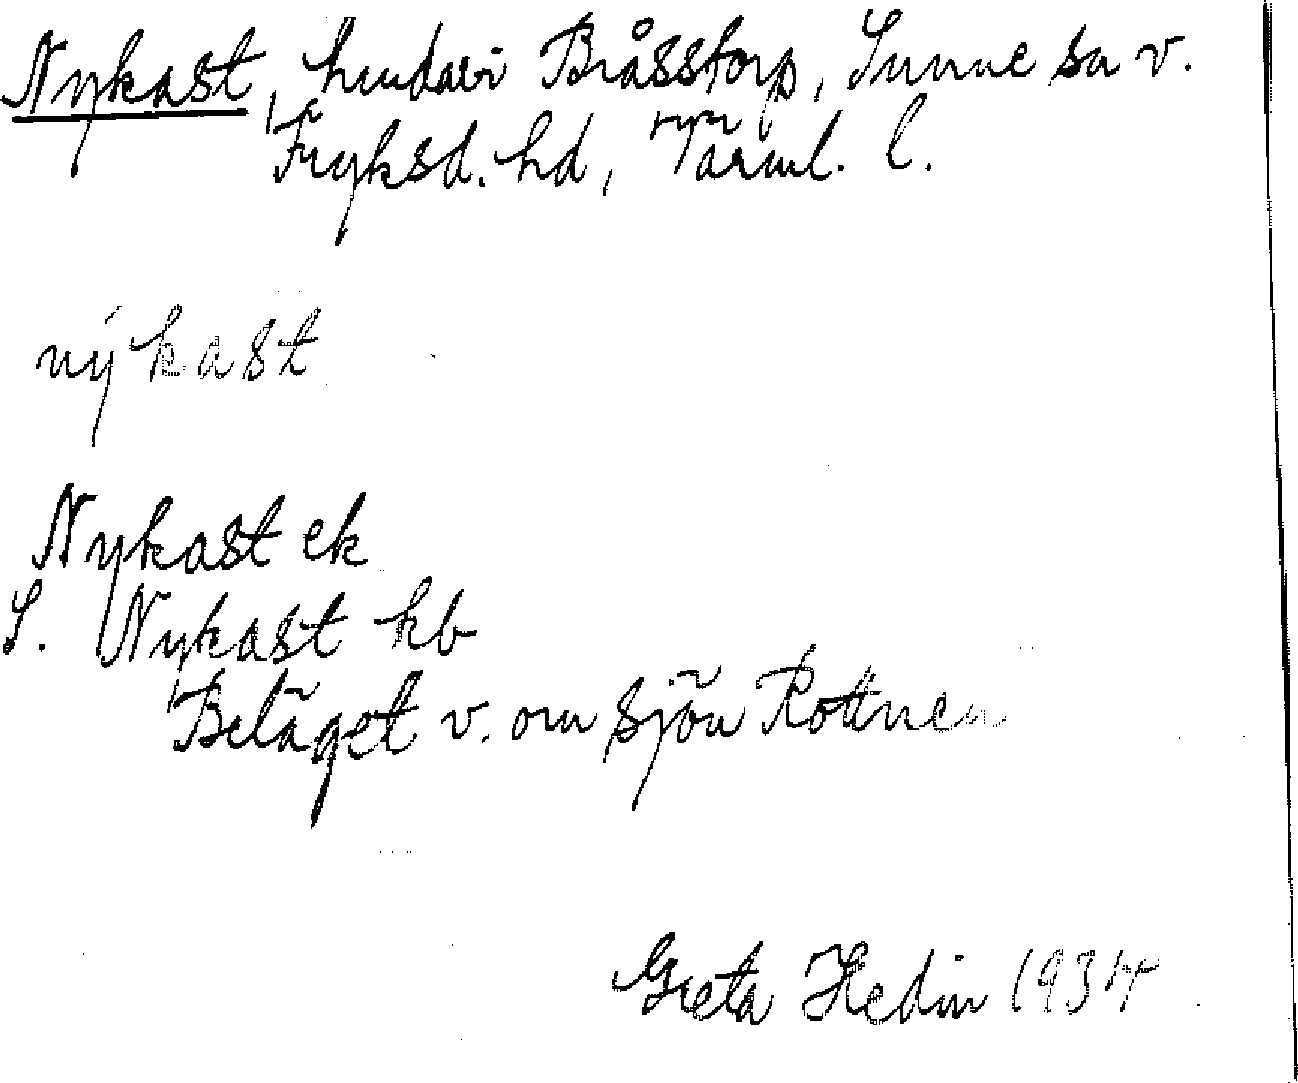 Nykast, hmdavi Bråsstorp, Sunne sn v.
Fryksd. hd, Värml. l.
nýkast
Nykast ek
S. Nykast kb
Beläget v. om sjön Rottnen
Greta Hedin 1934